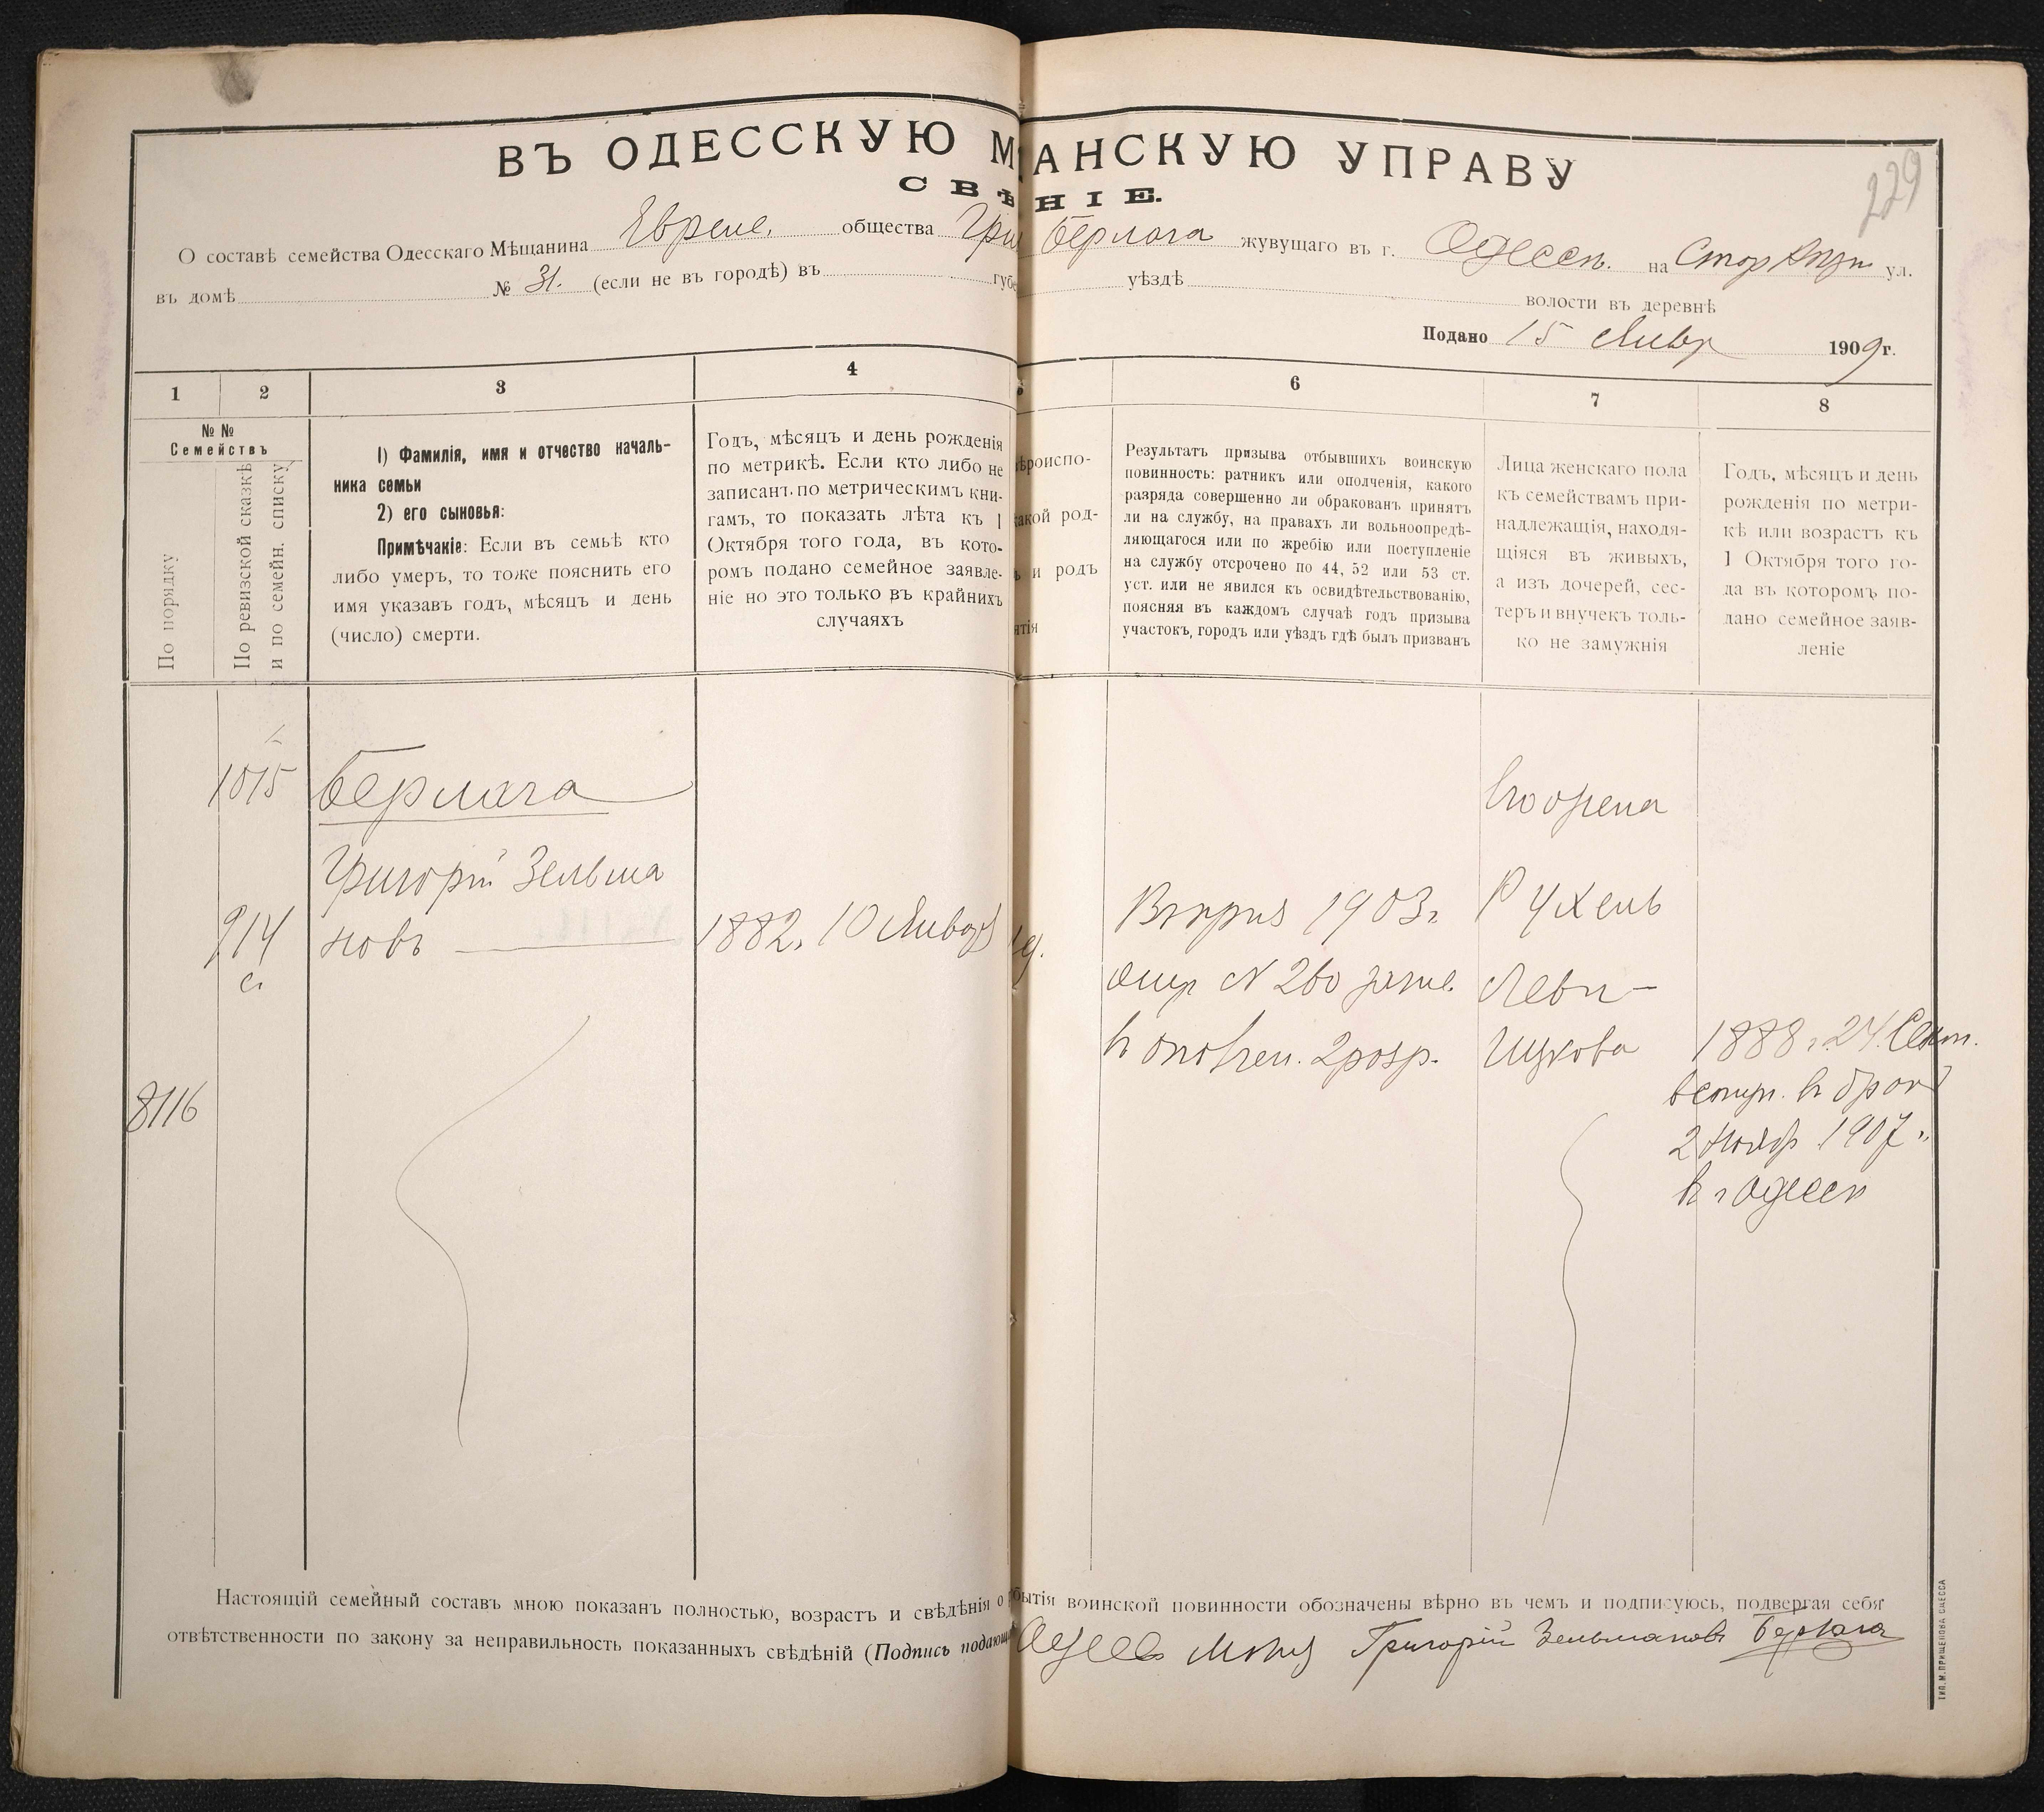 ВЪ ОДЕССКУЮ М АНСКУЮ УПРАВУ
229
СВѢ НІЕ.
О составѣ семейства Одесскаго Мѣщанина Евреис. общества Гри Берлага жувущаго въ г. Одессѣ. на ул.
въ домѣ № 31. (если не въ городѣ) въ губе уѣздѣ волости въ деревнѣ
Подано 15 Январ 1909 г.
1 2 3 4 5 6 7 8
№№
Семействъ
По порядку
По ревизской сказкѣ
и по семейн. списку
1) Фамилія, имя и отчество началь-
ника семьи
2) его сыновья:
Примѣчаніе: Если въ семьѣ кто
либо умеръ, то тоже пояснить его
имя указавъ годъ, мѣсяцъ и день
(число) смерти.
Годъ, мѣсяцъ и день рожденія
по метрикѣ. Если кто либо не
записанъ по метрическимъ кни-
гамъ, то показать лѣта къ 1
Октября того года, въ кото-
ромъ подано семейное заявле-
ніе но это только въ крайнихъ
случаяхъ
ѣроиспо-
акой род-
ь и родъ
ятія
Результатъ призыва отбывшихъ воинскую
повинность: ратникъ или ополченія, какого
разряда совершенно ли обракованъ принятъ
ли на службу, на правахъ ли вольноопредѣ-
ляющагося или по жребію или поступленіе
на службу отсрочено по 44, 52 или 53 ст.
уст. или не явился къ освидѣтельствованію,
поясняя въ каждомъ случаѣ годъ призыва
участокъ, городъ или уѣздъ гдѣ былъ призванъ
Лица женскаго пола
къ семействамъ при-
надлежащія, находя-
щіяся въ живыхъ,
а изъ дочерей, сес-
теръ и внучекъ толь-
ко не замужнія
Годъ, мѣсяцъ и день
рожденія по метри-
кѣ или возрастъ къ
1 Октября того го-
да въ котором по-
дано семейное заяв-
леніе
1015
Берлага
Григорій Зельма
914
с.
новъ
1882. 10 Января
8116
1903 г.
№ 260 зачис.
в ополчен. 2 разр.
Его жена
Рухель
Леви-
Ицкова
1888 г. 24. Сент.
вступ. в брак
2 Ноябр 1907 г.
в г Одессѣ
Настоящій семейный составъ мною показанъ полностью, возрастъ и свѣдѣнія о бытія воинской повинности обозначены вѣрно въ чемъ и подписуюсь, подвергая себя
отвѣтственности по закону за неправильность показанныхъ свѣдѣній (Подпись подающ Григорій Зельмановъ Берлага
ТИП. М. ПРИЩЕПОВА ОДЕССА